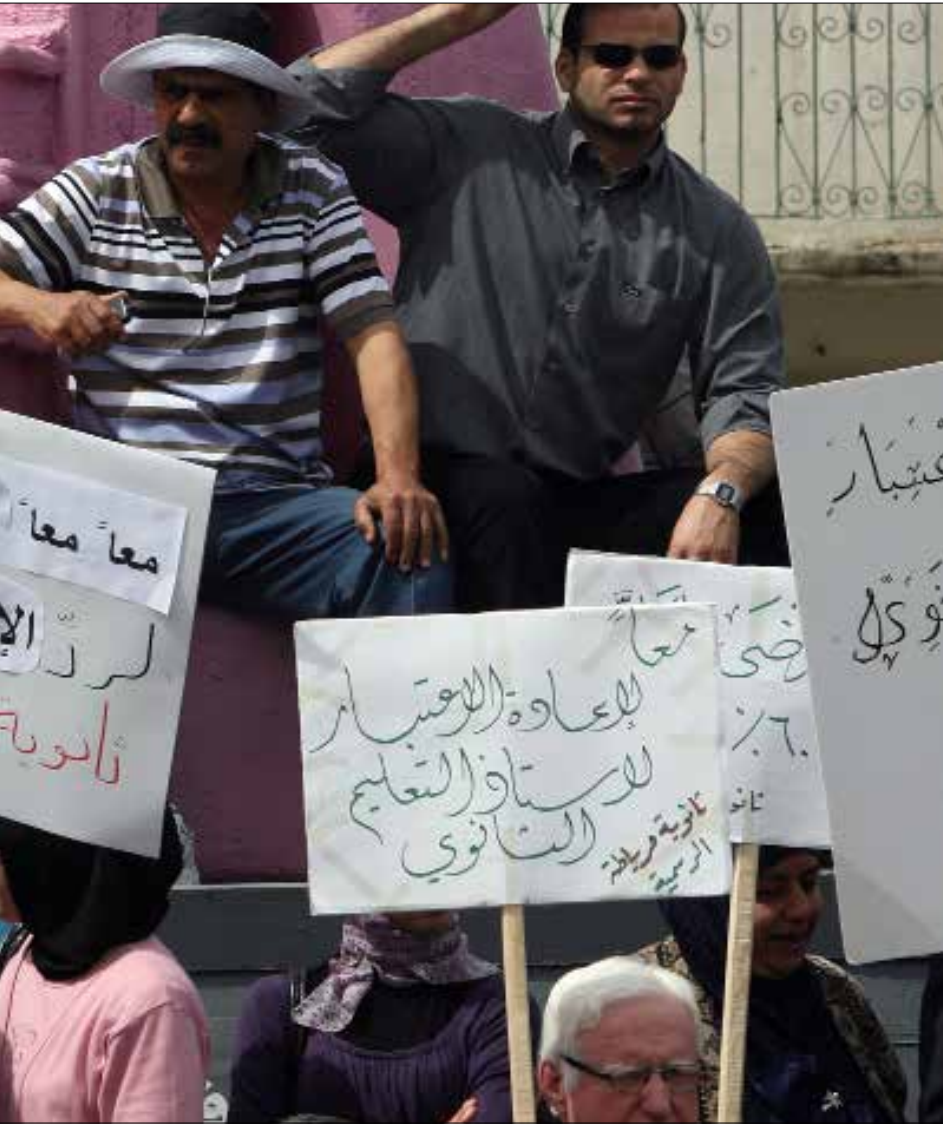 معاً معاً
لردّ الإ
ثانوية
معاً
لإعادة الاعتبار
لاستاذ التعليم
الثانوي
ثانوية مرياطة
الرسمية
٦٠٪
ثانو
عتبار
نوي